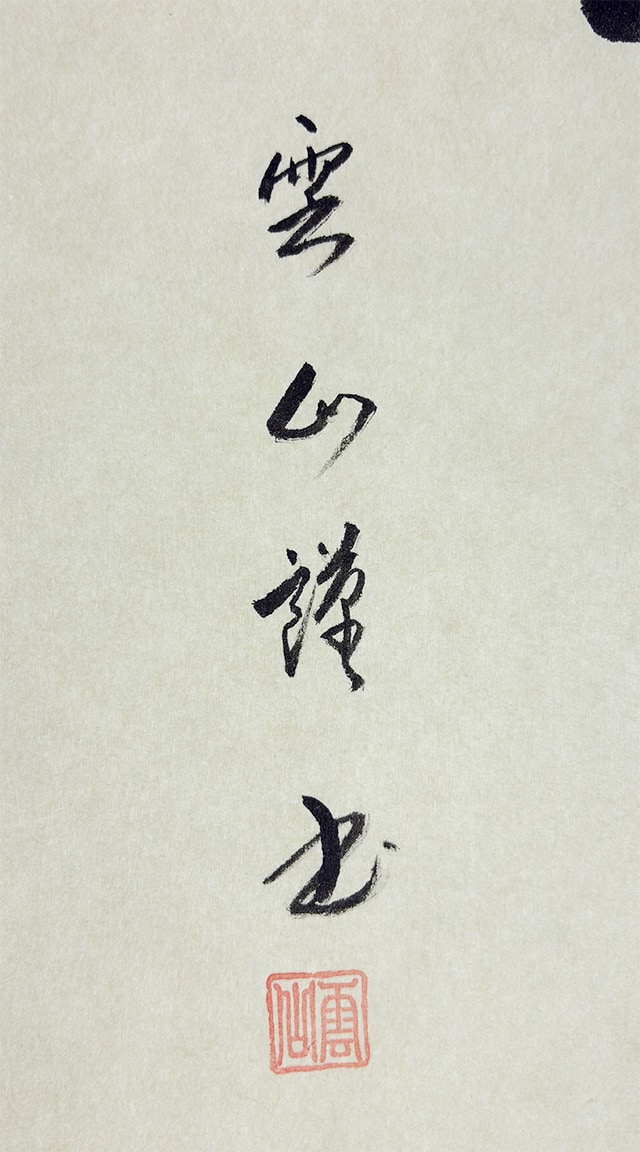 雲山謹書
雲